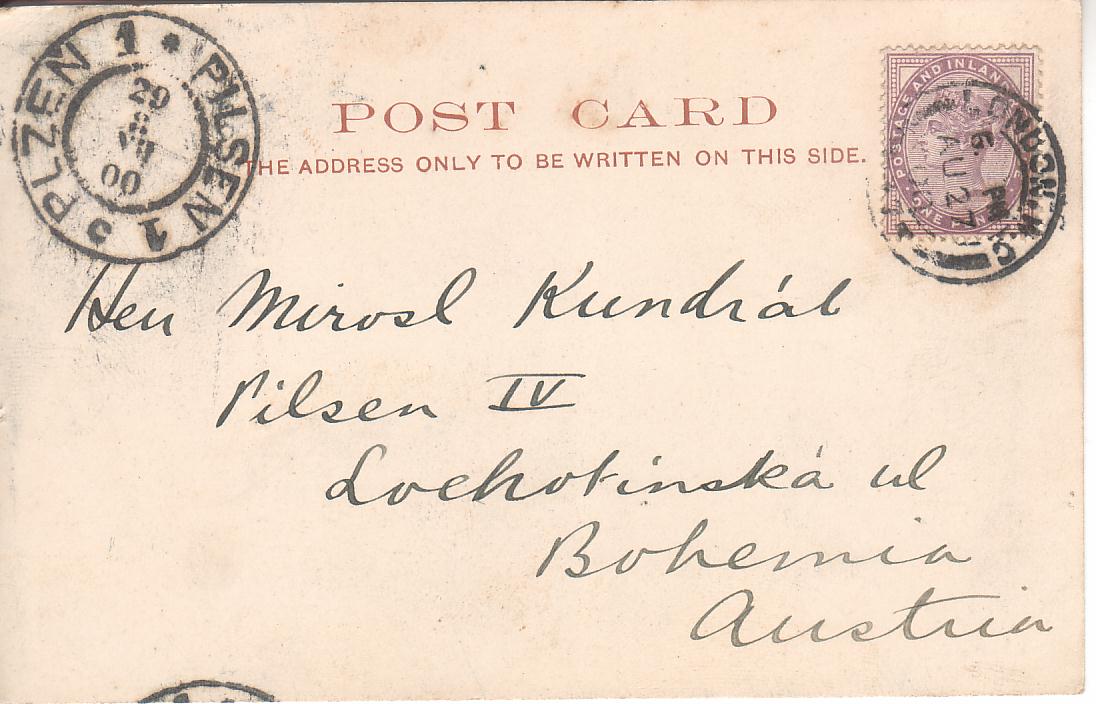 PLZEN 1 * PILSEN 1
29
00
POST CARD
THE ADDRESS ONLY TO BE WRITTEN ON THIS SIDE.
POSTAGE AND INLAND
ONE PENNY
LONDON. W.C
6. PM
AU 27
Herr Mirosl Kundrát
Pilsen IV
Lochotínská ul
Bohemia
Austria